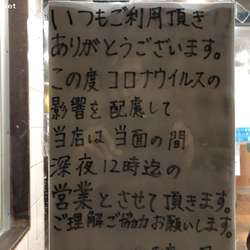 いつもご利用頂き
ありがとうございます。
この度コロナウイルスの
影響を配慮して
当店は当面の間
深夜12時迄の
営業とさせて頂きます。
ご理解ご協力お願いします。